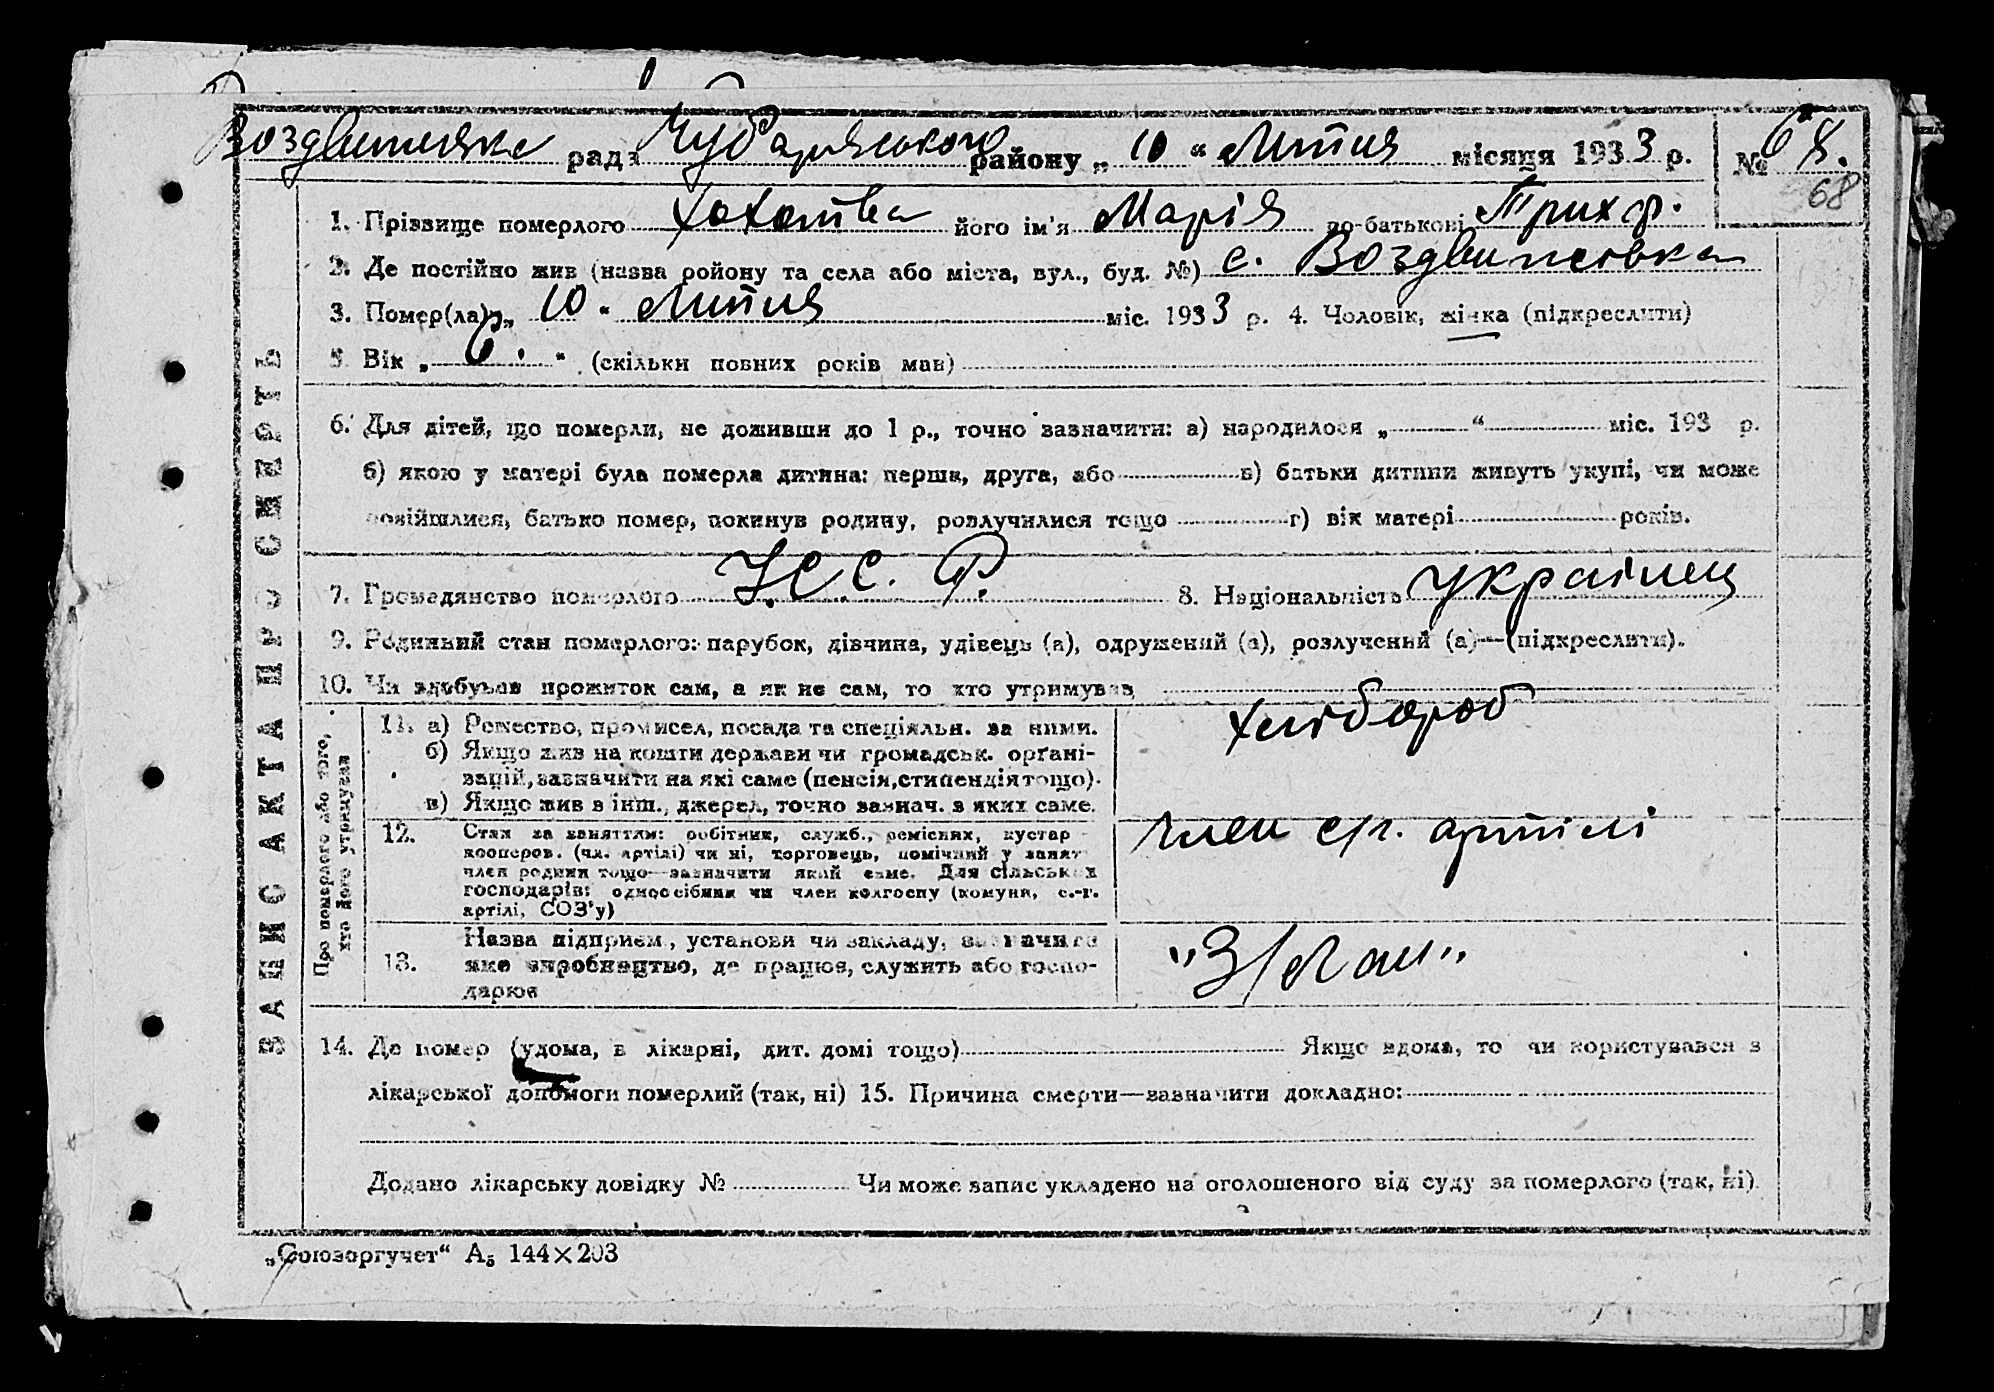 Воздвиженська рада Чубарівського району „ 10 “ Липня місяця 1933 р. № 68.
68
1. Прізвище померлого Хохотва його ім'я Марія по-батькові Триф.
2. Де постійно жив (назва ройону та села або міста, вул., буд. №) с. Воздвиженка
3. Помер(ла) „ 10 “ Липня міс. 1933 р. 4. Чоловік, жінка (підкреслити)
5. Вік „ 6. “ (скільки повних років мав)
6. Для дітей, що померли, не доживши до 1 р., точно зазначити: а) народилося „ “ міс. 193 р.
б) якою у матері була померла дитина: перша, друга, або в) батьки дитини живуть укупі, чи може
розійшлися, батько помер, покинув родину, розлучилися тощо г) вік матері років.
7. Громадянство померлого У.С.С.Р. 8. Національність українец
9. Родинний стан померлого: парубок, дівчина, удівець (а), одружений (а), розлучений (а)—(підкреслити).
10. Чи здобував прожиток сам, а як не сам, то хто утримував
ЗАПИС АКТА ПРО СМЕРТЬ
Про померлого або того, хто його утримував
11. а) Ремество, промисел, посада та спеціяльн. за ними. хлібороб
б) Якщо жив на кошти держави чи громадськ. орґані-
зацій, зазначити на які саме (пенсія, стипендія тощо).
в) Якщо жив в інш. джерел, точно зазнач. з яких саме.
12. Стан за заняттям: робітник, служб., ремісник, кустар член с/г. артілі
кооперов. (чл. артілі) чи ні, торговець, помічний у занят.
член родини тощо—зазначити який саме. Для сільських
господарів: одноосібник чи член колгоспу (комуни, с.-г.
артілі, СОЗ'у)
13. Назва підприєм., установи чи закладу, зазначити
яке виробництво, де працює, служить або госпо-
дарює
14. Де помер (удома, в лікарні, дит. домі тощо) Якщо вдома, то чи користувався з
лікарської допомоги померлий (так, ні) 15. Причина смерти—зазначити докладно:
Додано лікарську довідку № Чи може запис укладено на оголошеного від суду за померлого (так, ні)
„Союзоргучет“ А₅ 144×203